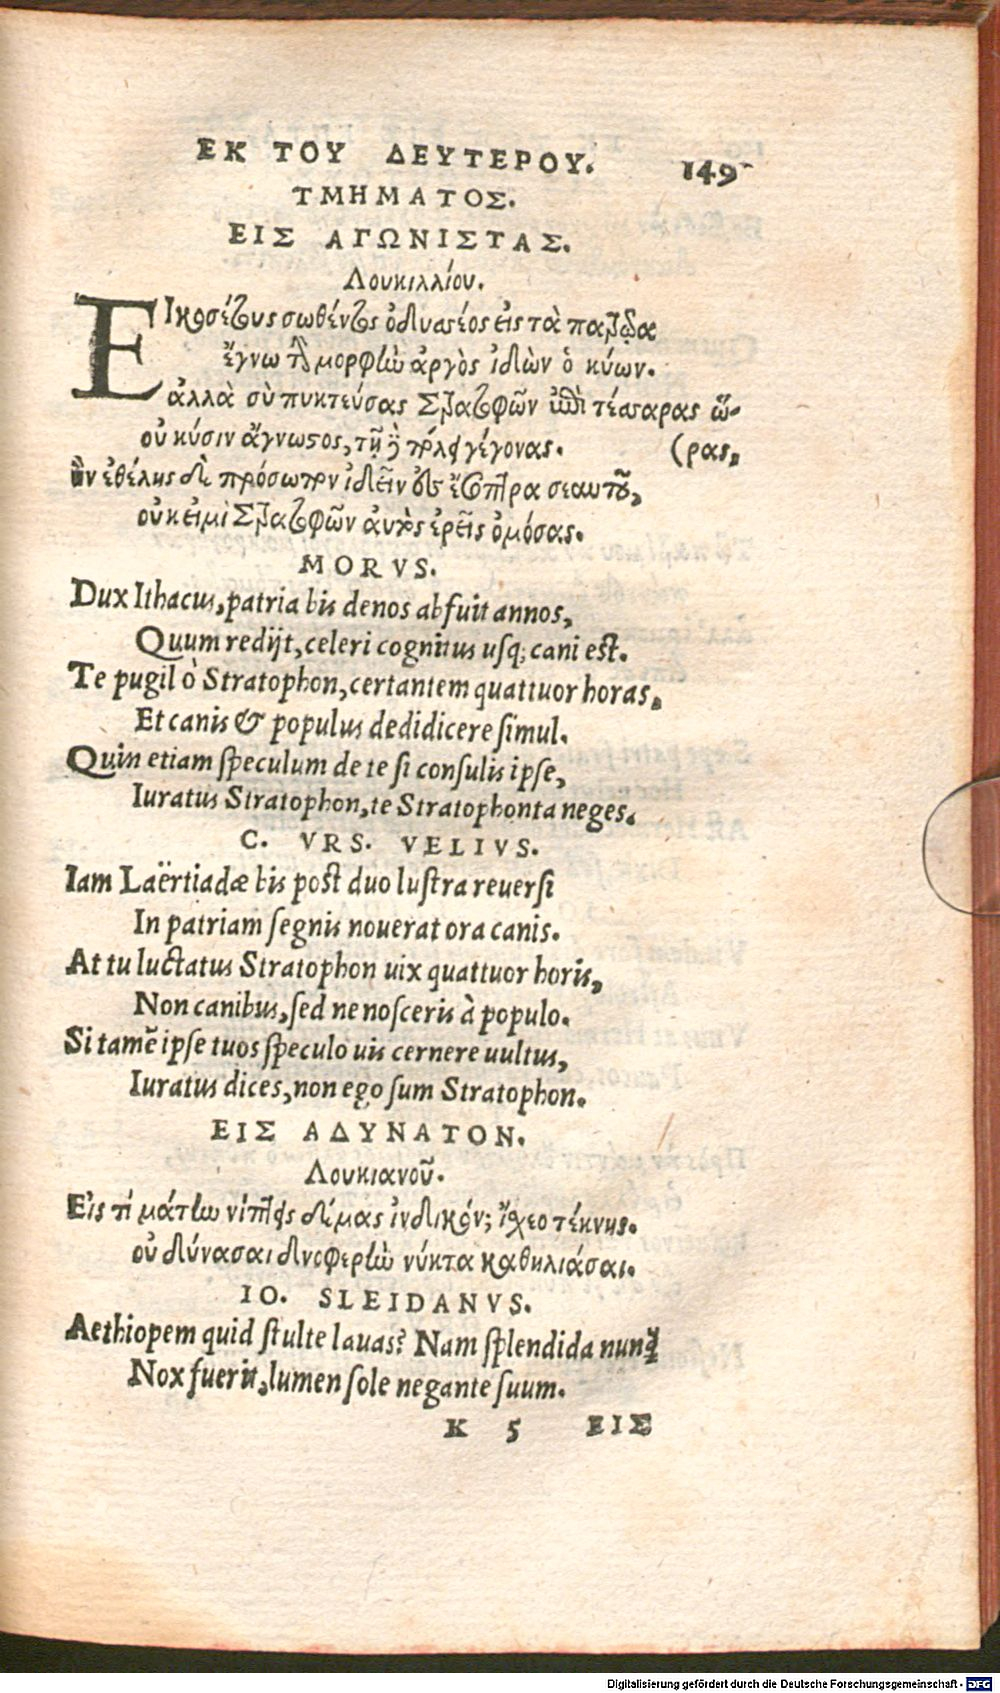 ΕΚ ΤΟΥ ΔΕΥΤΕΡΟΥ. 149
ΤΜΗΜΑΤΟΣ.
ΕΙΣ ΑΓΩΝΙΣΤΑΣ.
Λουκιλλίου.
ΕΙκοσέτους σωθέντος ὀδυασέος εἰς τὰ πατρῷα
ἔγνω τὴν μορφὴν ἀργὸς ἰδὼν ὁ κύων.
ἀλλὰ σὺ πυκτεύσας Στρατοφῶν ἐπὶ τέσσαρας ὥ-
οὐ κύσιν ἄγνωστος, τῇ δὲ πόλει γέγονας. (ρας,
ἢν ἐθέλῃς δὲ πρόσωπον ἰδεῖν ἐς ἔσοπτρα σεαυτοῦ,
οὐκ εἰμὶ Στρατοφῶν αὐτὸς ἐρεῖς ὀμόσας.
MORVS.
Dux Ithacus, patria bis denos abfuit annos,
Quum redijt, celeri cognitus usq; cani est.
Te pugil ò Stratophon, certantem quattuor horas,
Et canis & populus dedidicere simul.
Quin etiam speculum de te si consulis ipse,
Iuratus Stratophon, te Stratophonta neges.
C. VRS. VELIVS.
Iam Laërtiadæ bis post duo lustra reuersi
In patriam segnis nouerat ora canis.
At tu luctatus Stratophon uix quattuor horis,
Non canibus, sed ne nosceris à populo.
Si tamē ipse tuos speculo uis cernere uultus,
Iuratus dices, non ego sum Stratophon.
ΕΙΣ ΑΔΥΝΑΤΟΝ.
Λουκιανοῦ.
Εἰς τί μάτην νίπτεις δέμας ἰνδικόν; ἴσχεο τέχνης.
οὐ δύνασαι δνοφερὴν νύκτα καθηλιάσαι.
IO. SLEIDANVS.
Aethiopem quid stulte lauas? Nam splendida nunq̃
Nox fuerit, lumen sole negante suum.
K 5 ΕΙΣ
Digitalisierung gefördert durch die Deutsche Forschungsgemeinschaft - DFG